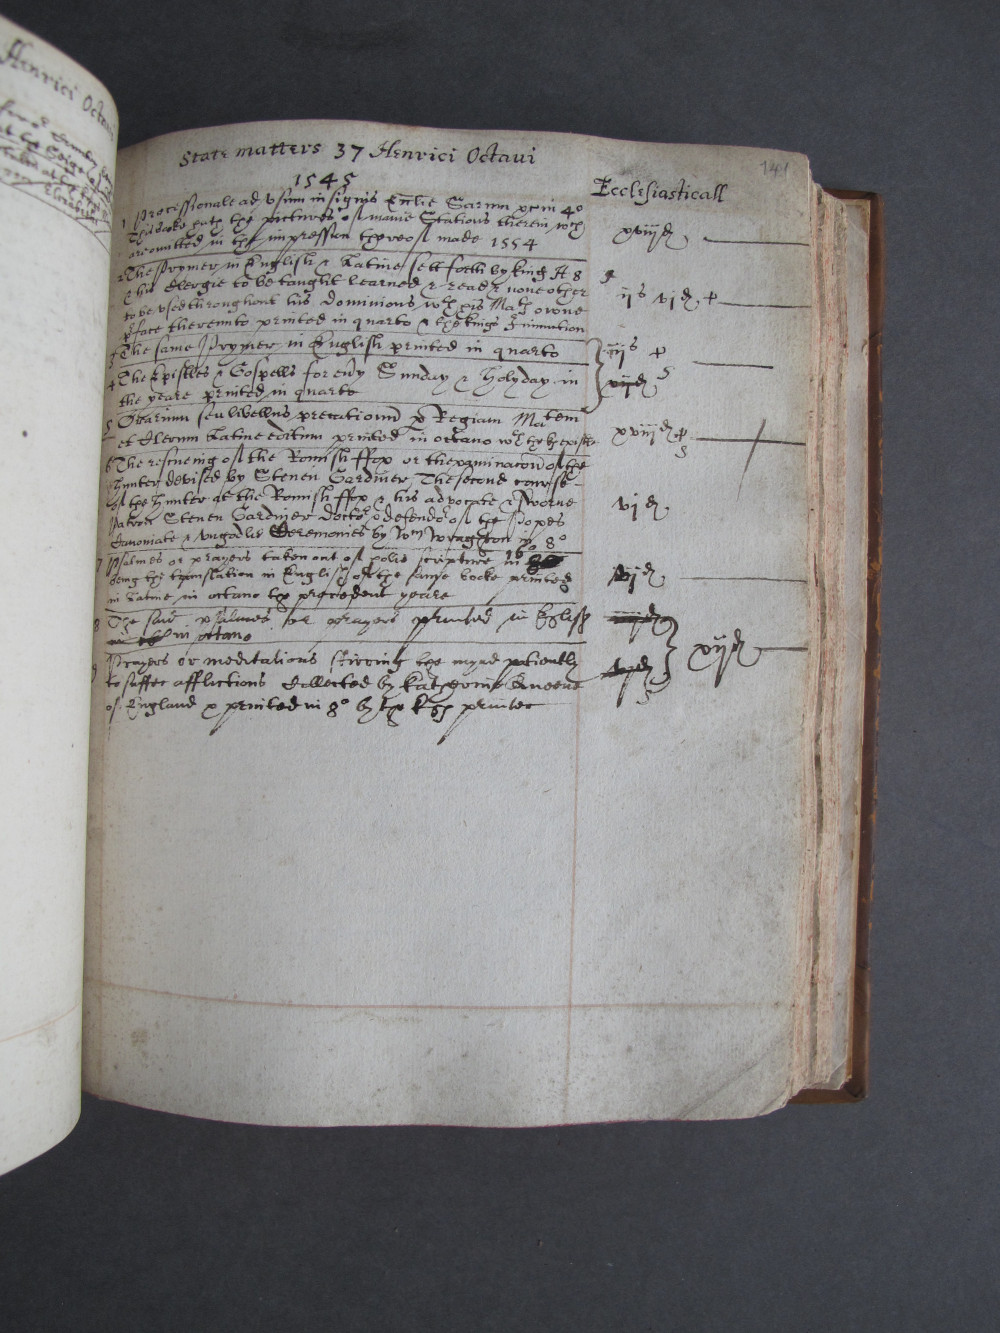 Henrici Octaui
State matters 37 Henrici Octaui
1545
Ecclesiasticall
1 Processionale ad vsum insignis Ecclie Sarum 4o
This booke hath the pictures of manie Stations therein wch
are omitted in the impression thereof made 1554
xviijd
2 The Prymer in English & Latine sett forth by king H 8
& his Clergie to be taught learned & read & none other
to be vsed throughout his dominions wth his Mats owne
preface therevnto printed in quarto & the kings Iniunction
ijs vjd
3 The same Prymer in English printed in quarto
iijs
4 The Epistles & Gospells for euery Sunday & Holyday in
the yeare printed in quarto
5 Orarium seu libellus precationum per Regiam Matem
et Clerum Latine editum printed in octauo
xviijd
6 The rescueing of the Romish ffox or the examinacon of the
Hunter devised by Steuen Gardiner, The second course
of the Hunter at the Romish ffox & his advocate & sworne
Patron Steuen Gardiner Doctor & defendor of the Popes
Canonlate & vngodlie Ceremonies by Wm Wraghton in 8o
vjd
7 Psalmes or prayers taken out of holie scripture in 16o
being the translation in English of the same booke printed
in Latine in octauo the precedent yeare
8 The said psalmes or prayers printed in English
in octauo
9 Prayers or meditations stirring the mynd patiently
to suffer afflictions Collected by Katherine Queene
of England & printed in 8o by the kgs printer
xijd